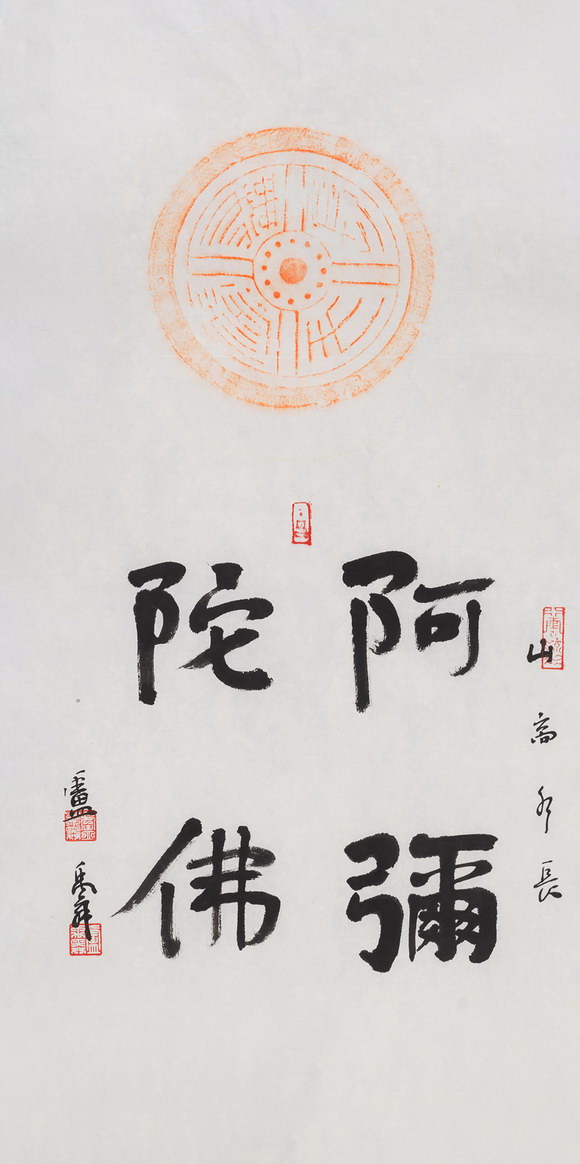 山高水長
阿彌
陀佛
盧禹舜